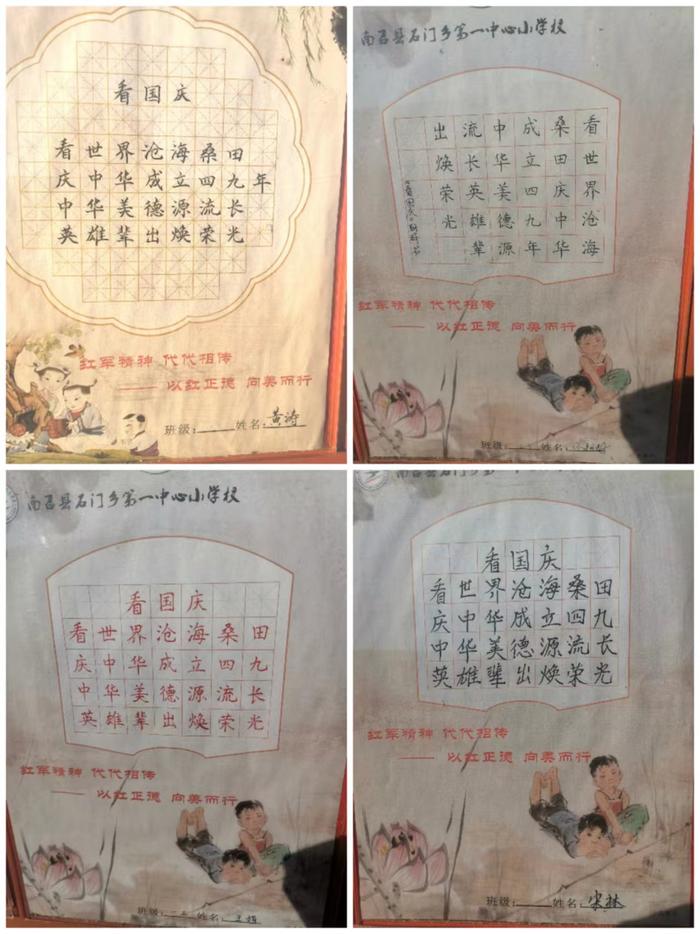 看国庆
看世界沧海桑田
庆中华成立四九年
中华美德源流长
英雄辈出焕荣光
红军精神 代代相传
—— 以红正德 向美而行
班级: 姓名:黄涛
南召县石门乡第一中心小学校
看世界沧海
桑田庆中华
成立四九年
中华美德源
流长英雄辈
出焕荣光
红军精神 代代相传
—— 以红正德 向美而行
班级: 姓名:
南召县石门乡第一中心小学校
看国庆
看世界沧海桑田
庆中华成立四九
中华美德源流长
英雄辈出焕荣光
红军精神 代代相传
—— 以红正德 向美而行
班级: 姓名:
南召县石门乡第一中心小学校
看国庆
看世界沧海桑田
庆中华成立四九
中华美德源流长
英雄辈出焕荣光
红军精神 代代相传
—— 以红正德 向美而行
班级: 姓名:宋林